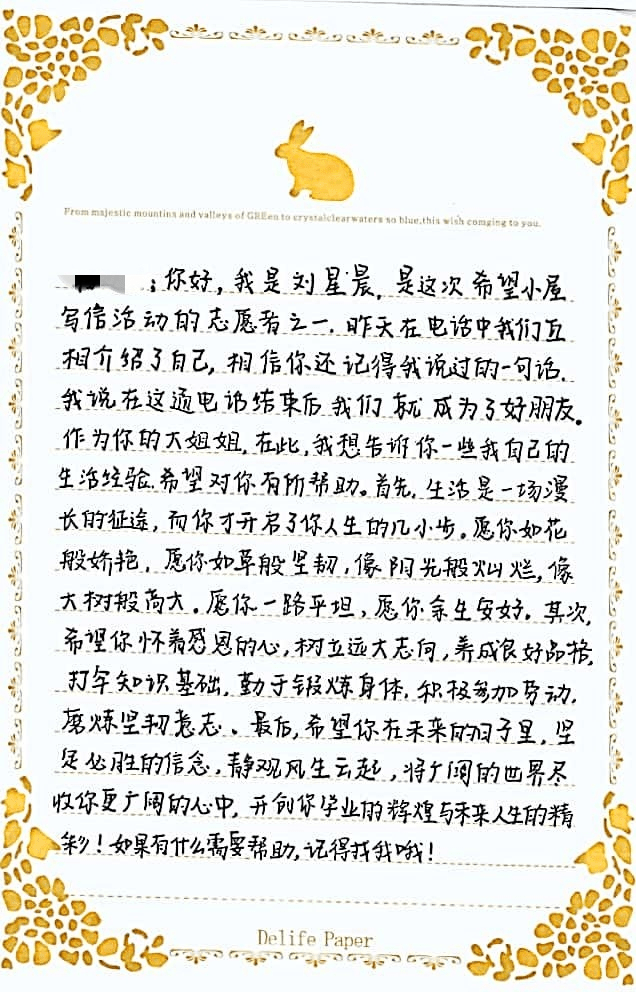 From majestic mountins and valleys of GREen to crystalclearwaters so blue,this wish comging to you.
：你好，我是刘星晨，是这次希望小屋
写信活动的志愿者之一．昨天在电话中我们互
相介绍了自己，相信你还记得我说过的一句话．
我说在这通电话结束后我们就成为了好朋友。
作为你的大姐姐，在此，我想告诉你一些我自己的
生活经验．希望对你有所帮助。首先，生活是一场漫
长的征途，而你才开启了你人生的几小步。愿你如花
般娇艳，愿你如草般坚韧，像阳光般灿烂，像
大树般高大。愿你一路平坦，愿你余生安好。其次，
希望你怀着感恩的心，树立远大志向，养成良好品格，
打牢知识基础，勤于锻炼身体，积极参加劳动，
磨炼坚韧意志。最后，希望你在未来的日子里，坚
定必胜的信念，静观风生云起，将广阔的世界尽
收你更广阔的心中，开创你学业的辉煌与未来人生的精
彩！如果有什么需要帮助，记得找我哦！
Delife Paper